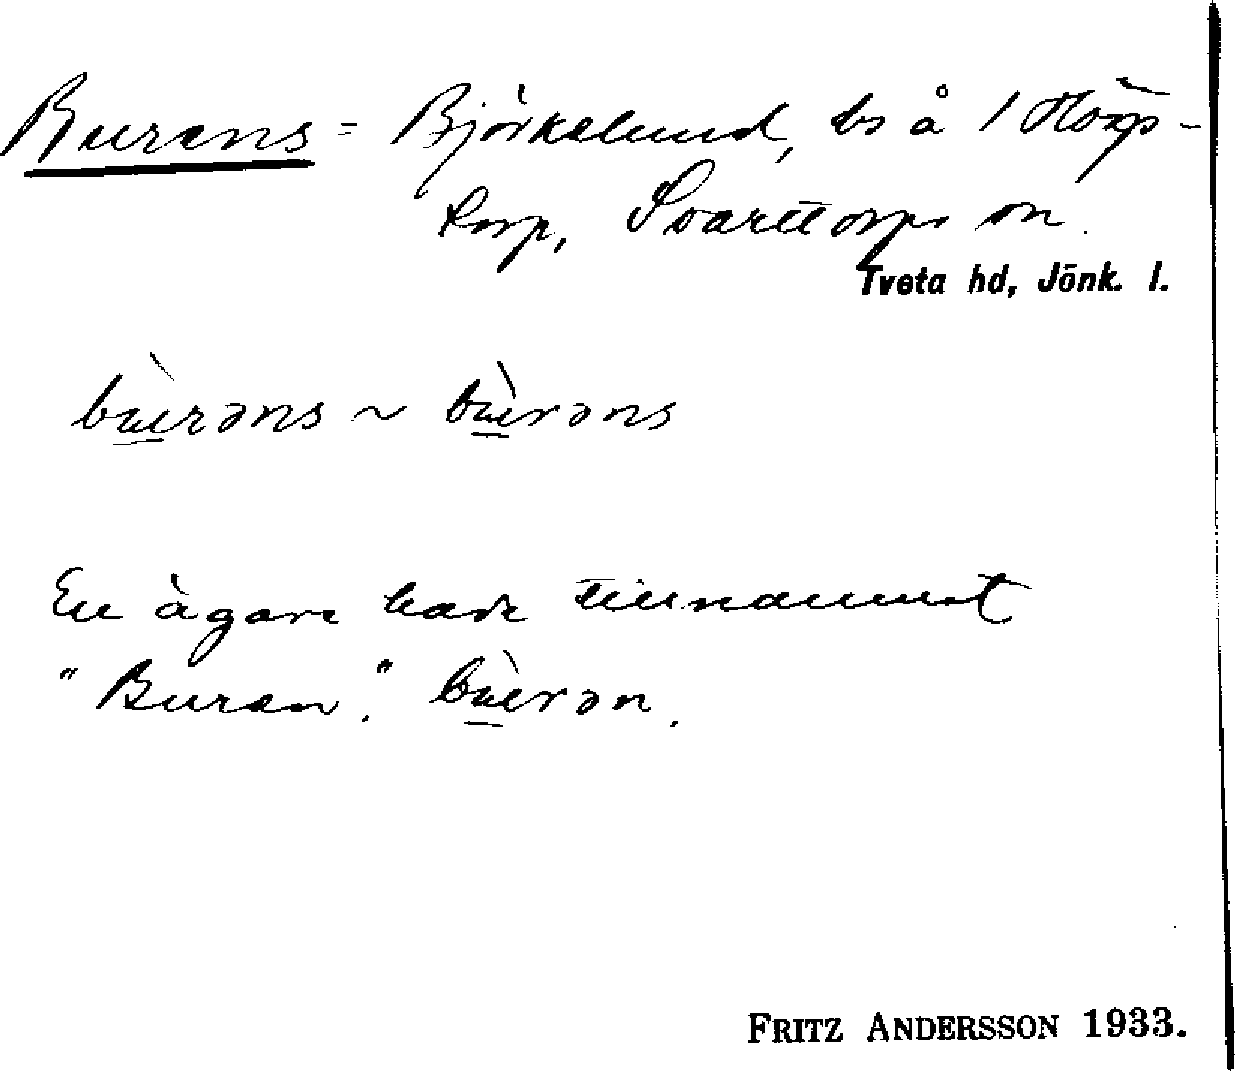 Burens = Björkelund, bs å 1 Hörs-
torp, Svarttorps sn.
Tveta hd, Jönk. l.
bùrəns ~ bùrəns
En ägare hade tillnamnet
"Buren." bùrən.
FRITZ ANDERSSON 1933.